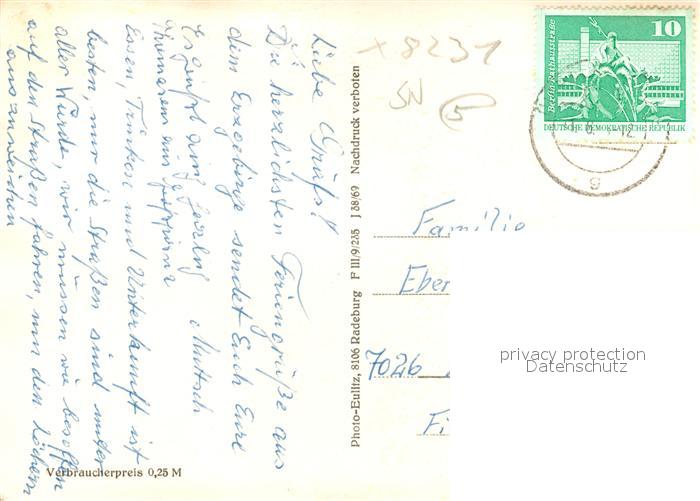 Liebe Grüße!
Die herzlichsten Feriengrüße aus
dem Erzgebirge sendet Euch Eure
Mutsch
Es
Essen, Trinken und Unterkunft ist
besten, nur die Straßen sind unter
aller Würde, wir müssen wie besoffen
auf den Straßen fahren, um den Löchern
auszuweichen
Verbraucherpreis 0,25 M
Photo-Eulitz, 8106 Radeburg F III/9/235 J 38/69 Nachdruck verboten
x 8231
SN 5
Berlin, Rathausstraße
10
DEUTSCHE DEMOKRATISCHE REPUBLIK
g
Familie
Eber
7026
Fi
privacy protection
Datenschutz